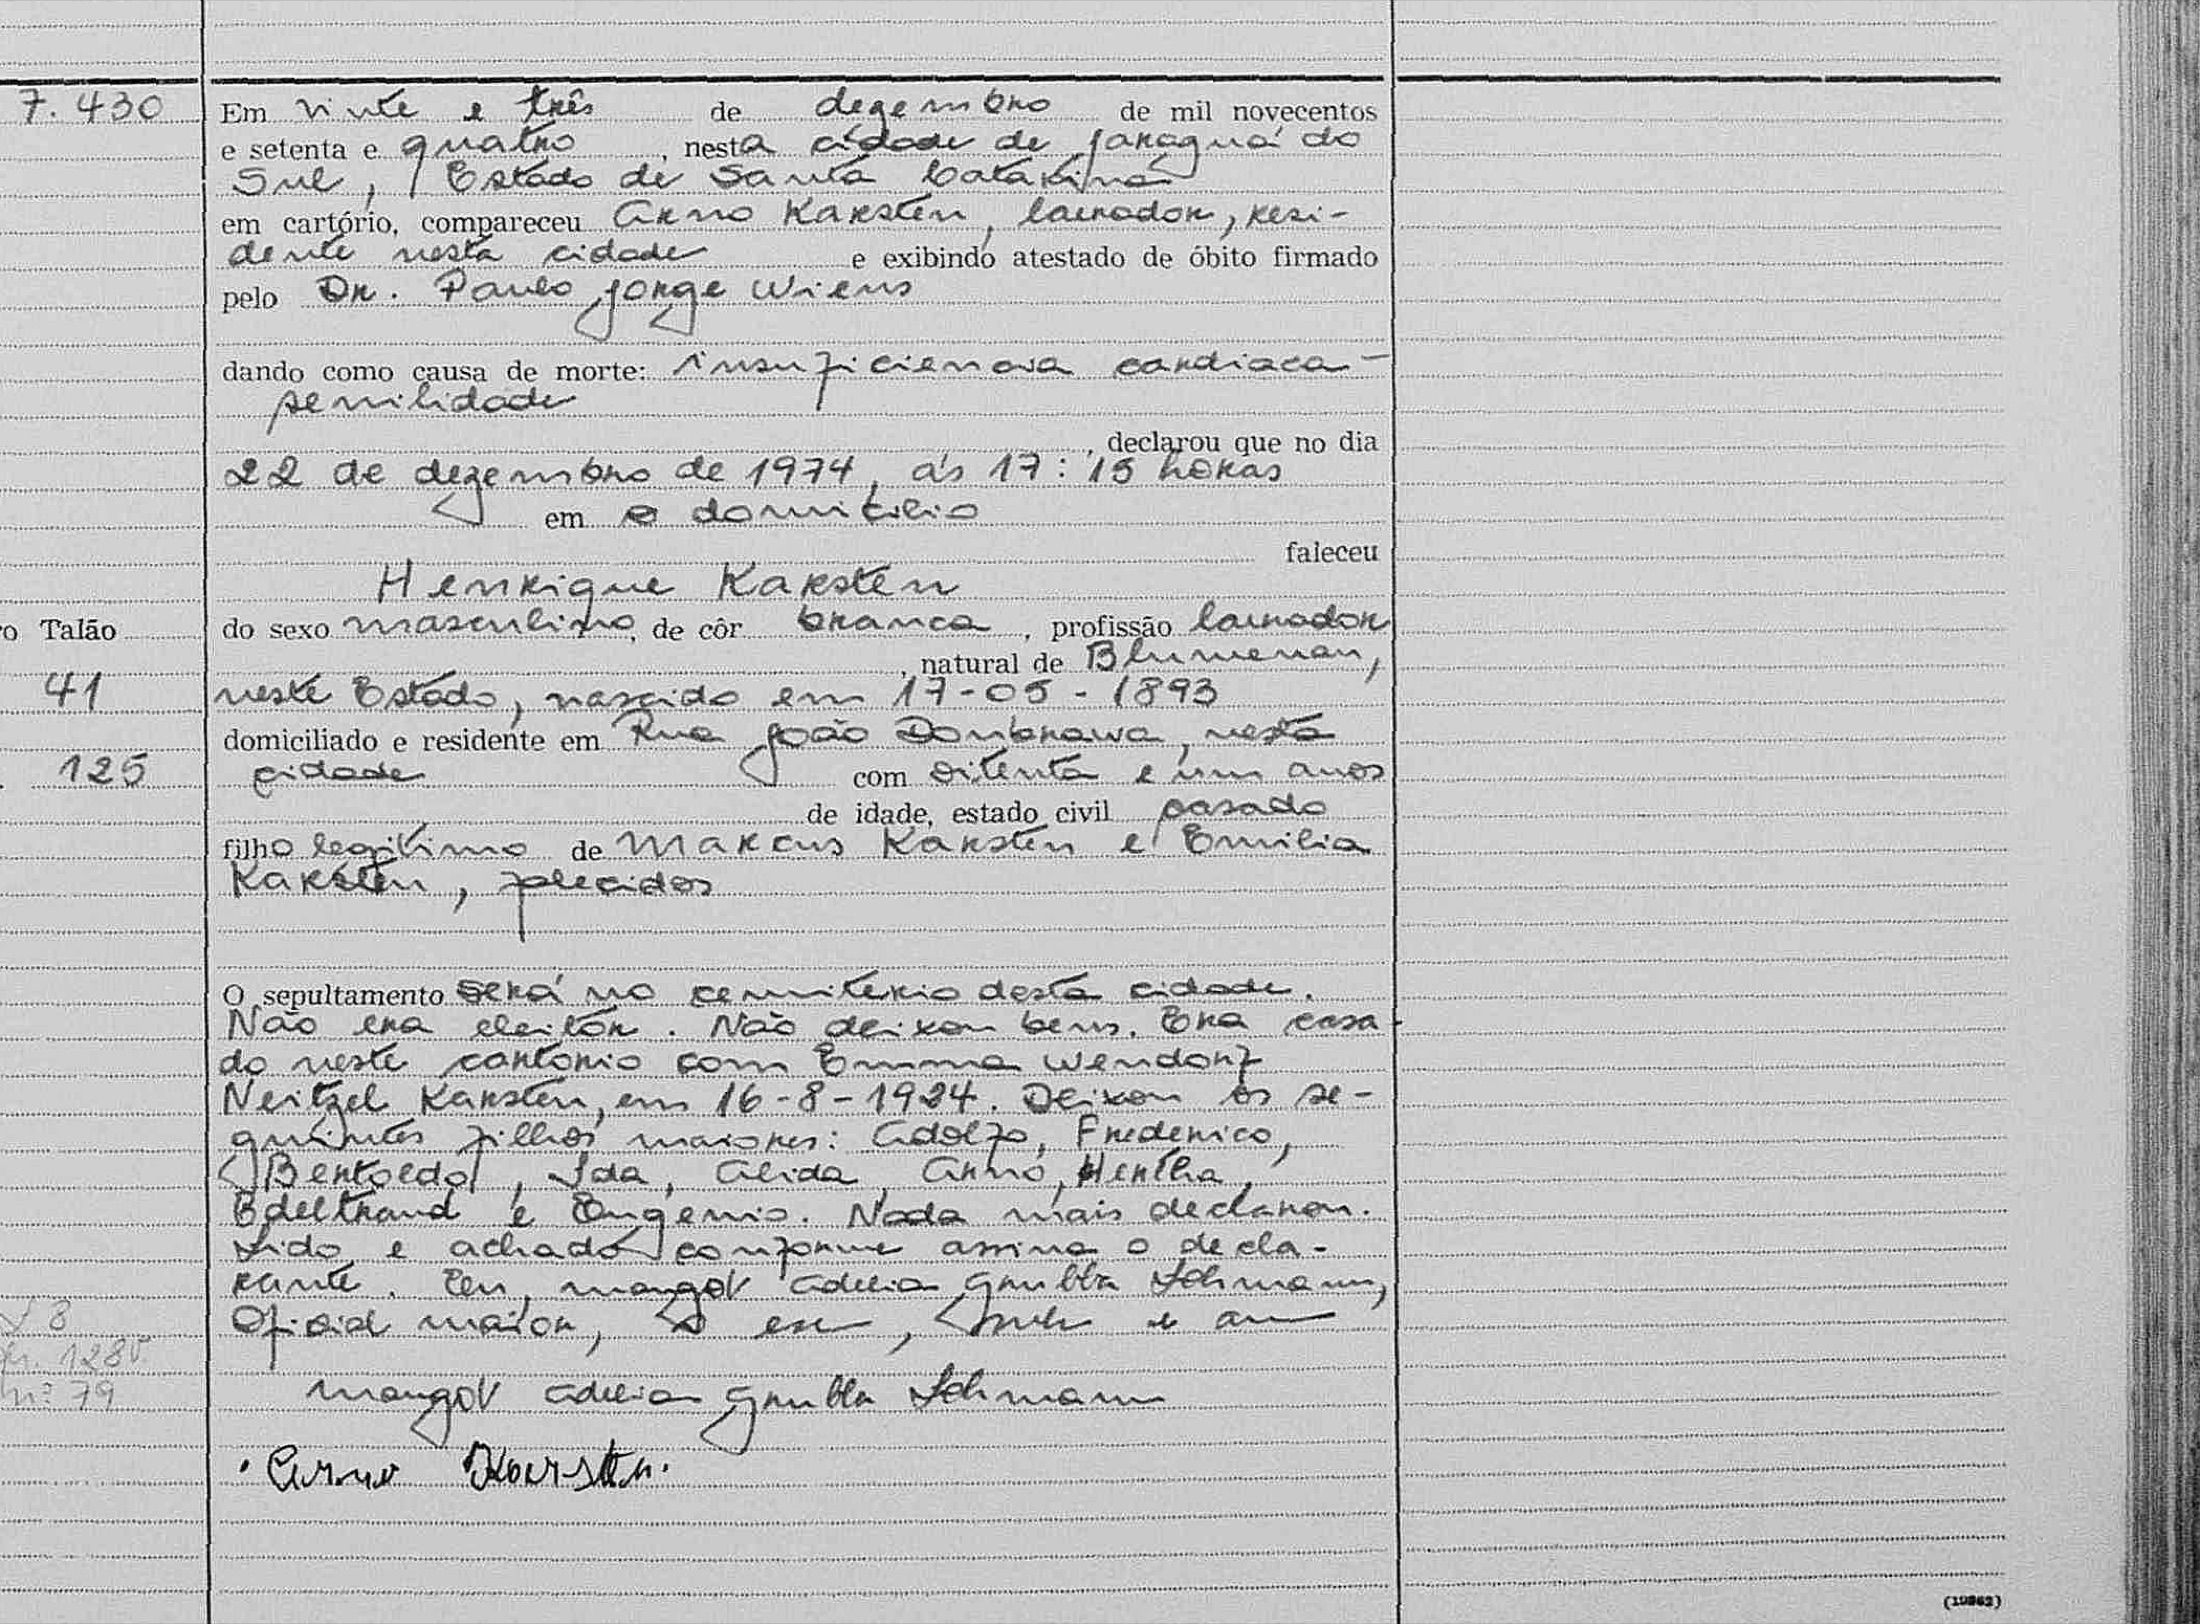 7.430
Em vinte e três de dezembro de mil novecentos
e setenta e quatro, nesta cidade de Jaraguá do
Sul, Estado de Santa Catarina
em cartório, compareceu Arno Karsten, lavrador, resi-
dente nesta cidade e exibindo atestado de óbito firmado
pelo Dr. Paulo Jorge Wiens
dando como causa de morte: insuficiencia cardiaca -
senilidade
, declarou que no dia
22 de dezembro de 1974, ás 17:15 horas
em o domicilio
faleceu
Henrique Karsten
o Talão do sexo masculino, de côr branca, profissão lavrador
, natural de Blumenau,
41 neste Estado, nascido em 17-05-1893
domiciliado e residente em Rua João Dombrawa, nesta
125 cidade com oitenta e um anos
de idade, estado civil casado
filho legitimo de Marcus Karsten e Emilia
Karsten, falecidos
O sepultamento será no cemiterio desta cidade.
Não era eleitor. Não deixou bens. Era casa-
do neste cartorio com Emma Wendorf
Neitzel Karsten, em 16-8-1924. Deixou os se-
guintes filhos maiores: Adolfo, Frederico,
Bertoldo, Ida, Alida, Arno, Hertha,
Edeltraud e Eugenio. Nada mais declarou.
Lido e achado conforme assina o decla-
rante. Eu, Margot Adelia Grubba Lehmann,
Oficial maior, o
Margot Adelia Grubba Lehmann
Arno Karsten.
128v.
nº 79
(19862)